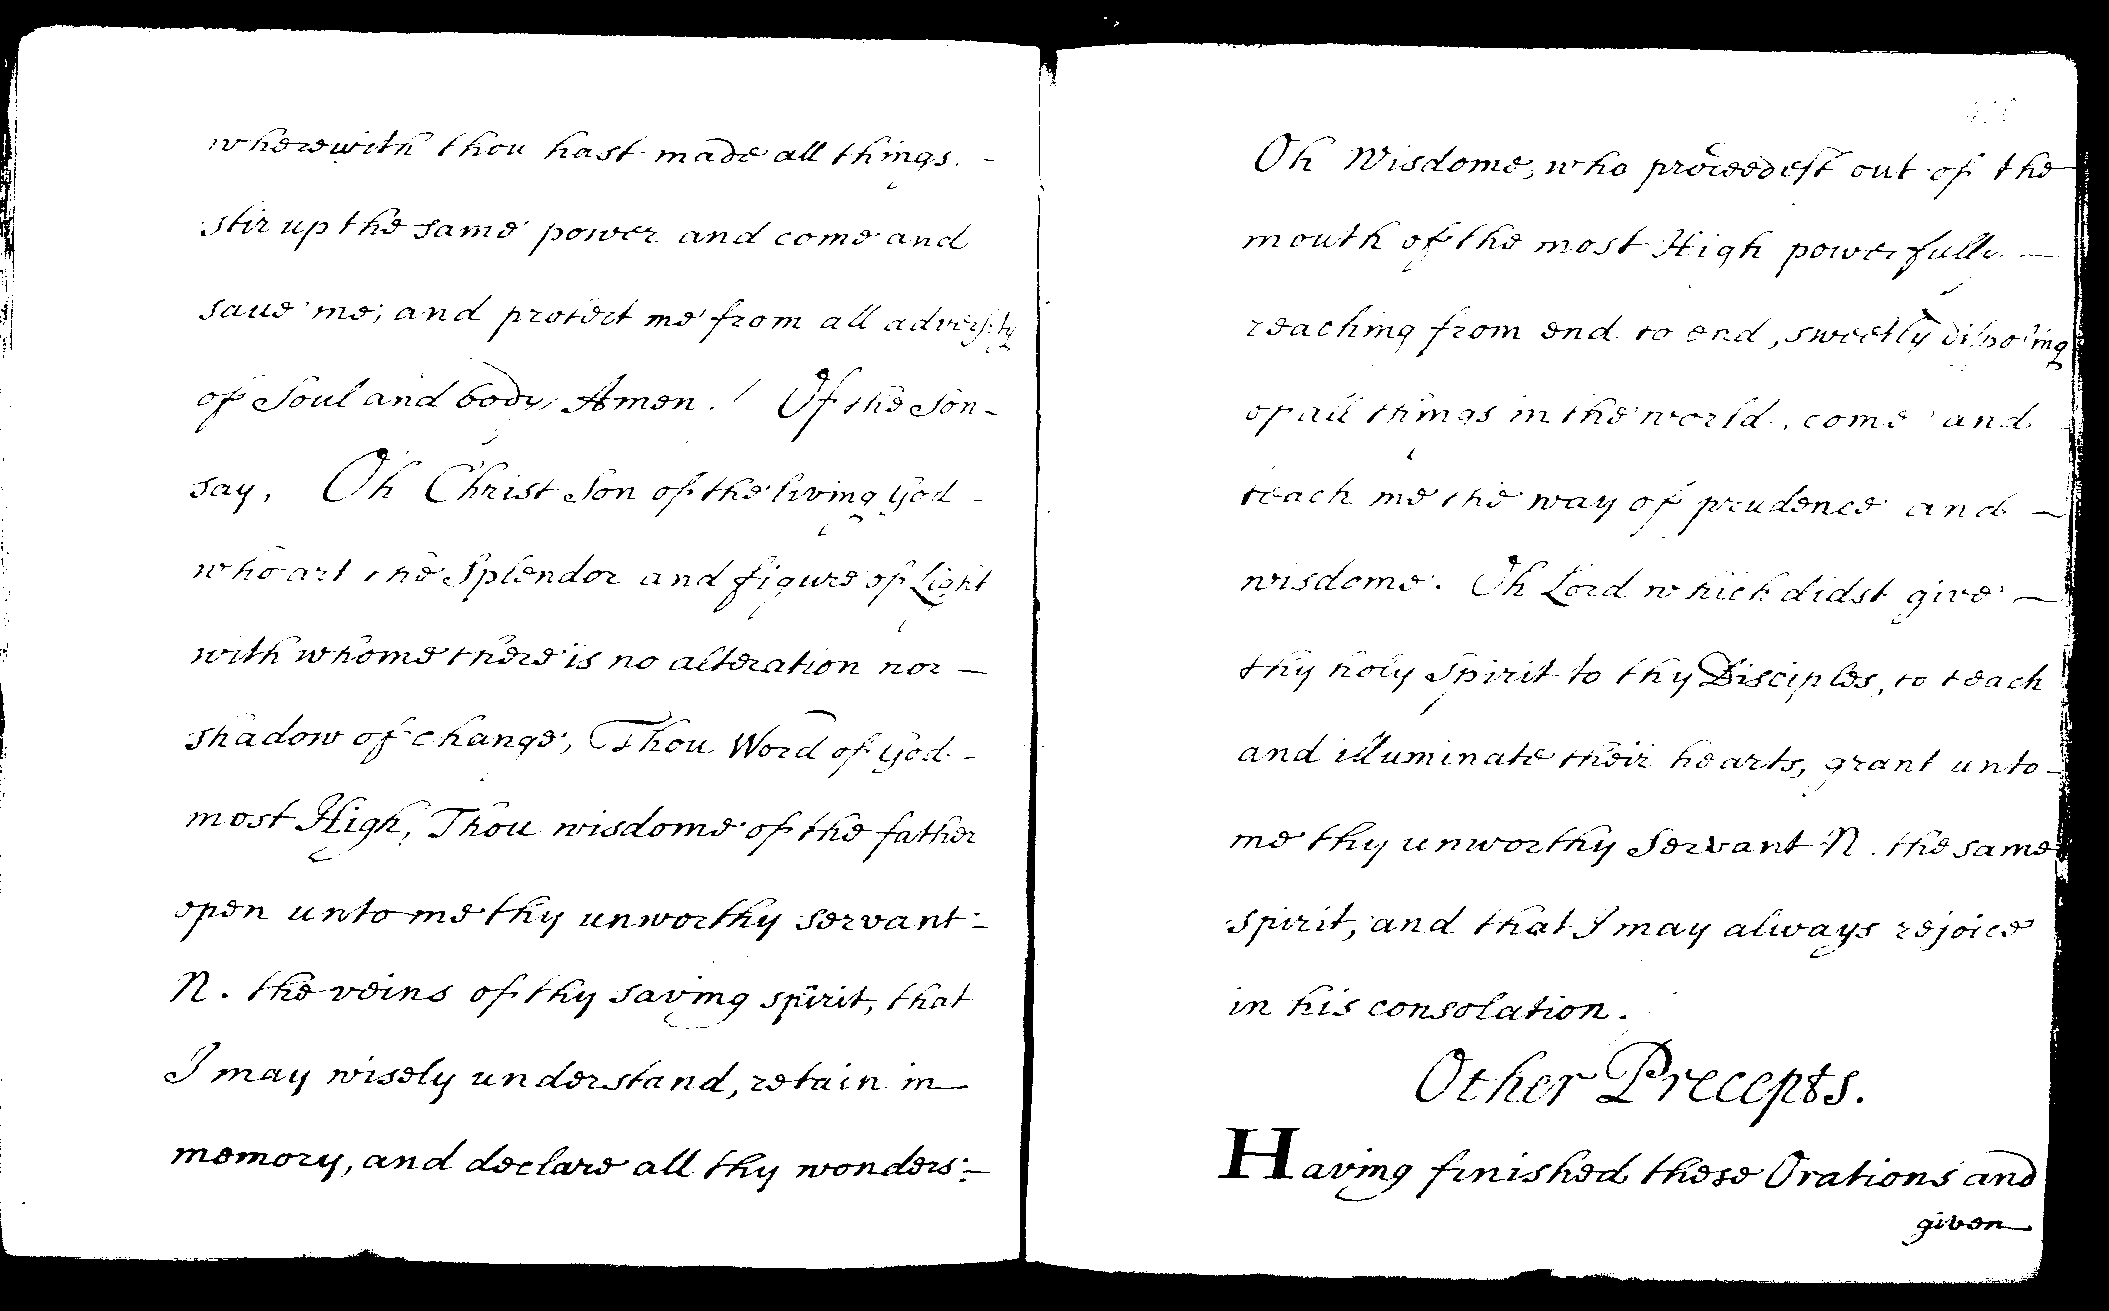 wherewith thou hast made all things. -
stir up the same power and come and
saue me, and protect me from all adversity
of Soul and body, Amen. Of the Son -
say, Oh Christ Son of the living God -
who art the Splendor and figure of Light
with whome there is no alteration nor -
shadow of change, Thou Word of God -
most High, Thou wisdome of the father
open unto me thy unworthy servant -
N. the veins of thy saving spirit, that
I may wisely understand, retain in
memory, and declare all thy wonders: -
Oh Wisdome, who proceedest out of the
mouth of the most High powerfully -
reaching from end to end, sweetly disposing
of all things in the world, come and
teach me the way of prudence and -
wisdome. Oh Lord which didst give -
thy holy Spirit to thy Disciples, to teach
and illuminate their hearts, grant unto -
me thy unworthy Servant N. the same
spirit, and that I may always rejoice
in his consolation.
Other Precepts.
Having finished these Orations and
given